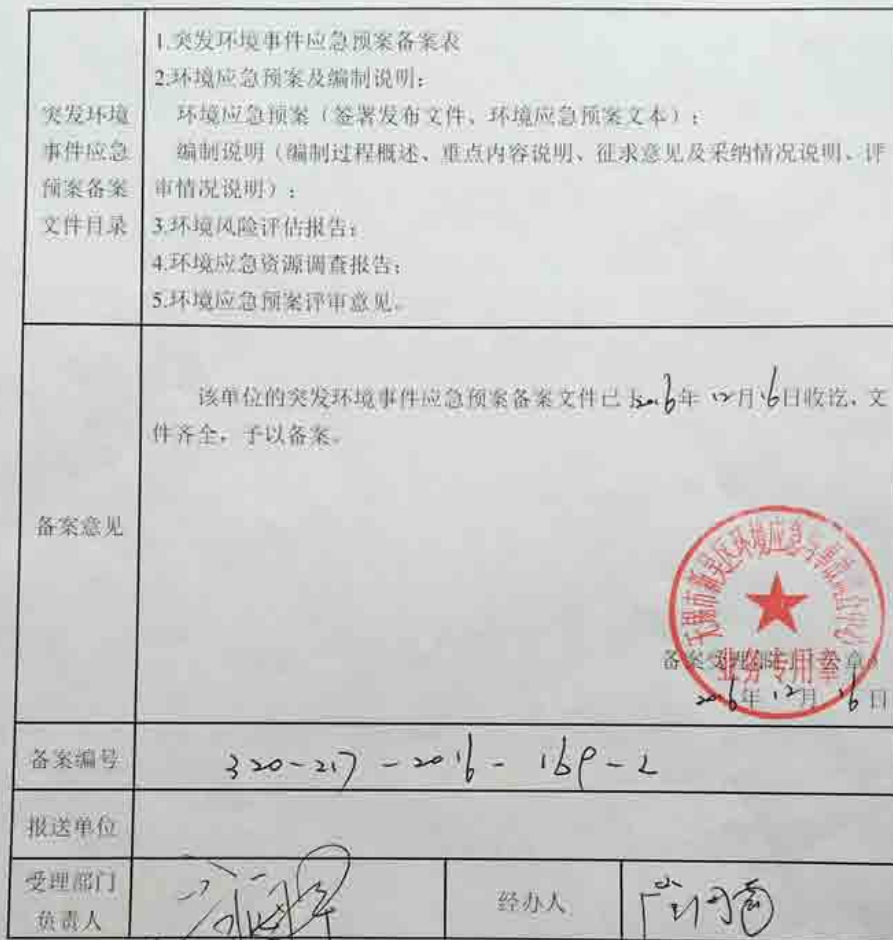 突发环境
事件应急
预案备案
文件目录
1.突发环境事件应急预案备案表
2.环境应急预案及编制说明;
环境应急预案(签署发布文件、环境应急预案文本);
编制说明(编制过程概述、重点内容说明、征求意见及采纳情况说明、评
审情况说明);
3.环境风险评估报告;
4.环境应急资源调查报告;
5.环境应急预案评审意见。
备案意见
该单位的突发环境事件应急预案备案文件已于2016年12月16日收讫,文
件齐全,予以备案。
无锡市新吴区环境应急与事故
业务专用章
备案受理部门(公章)
2016年12月16日
备案编号
320-217-2016-169-L
报送单位
受理部门
负责人
经办人